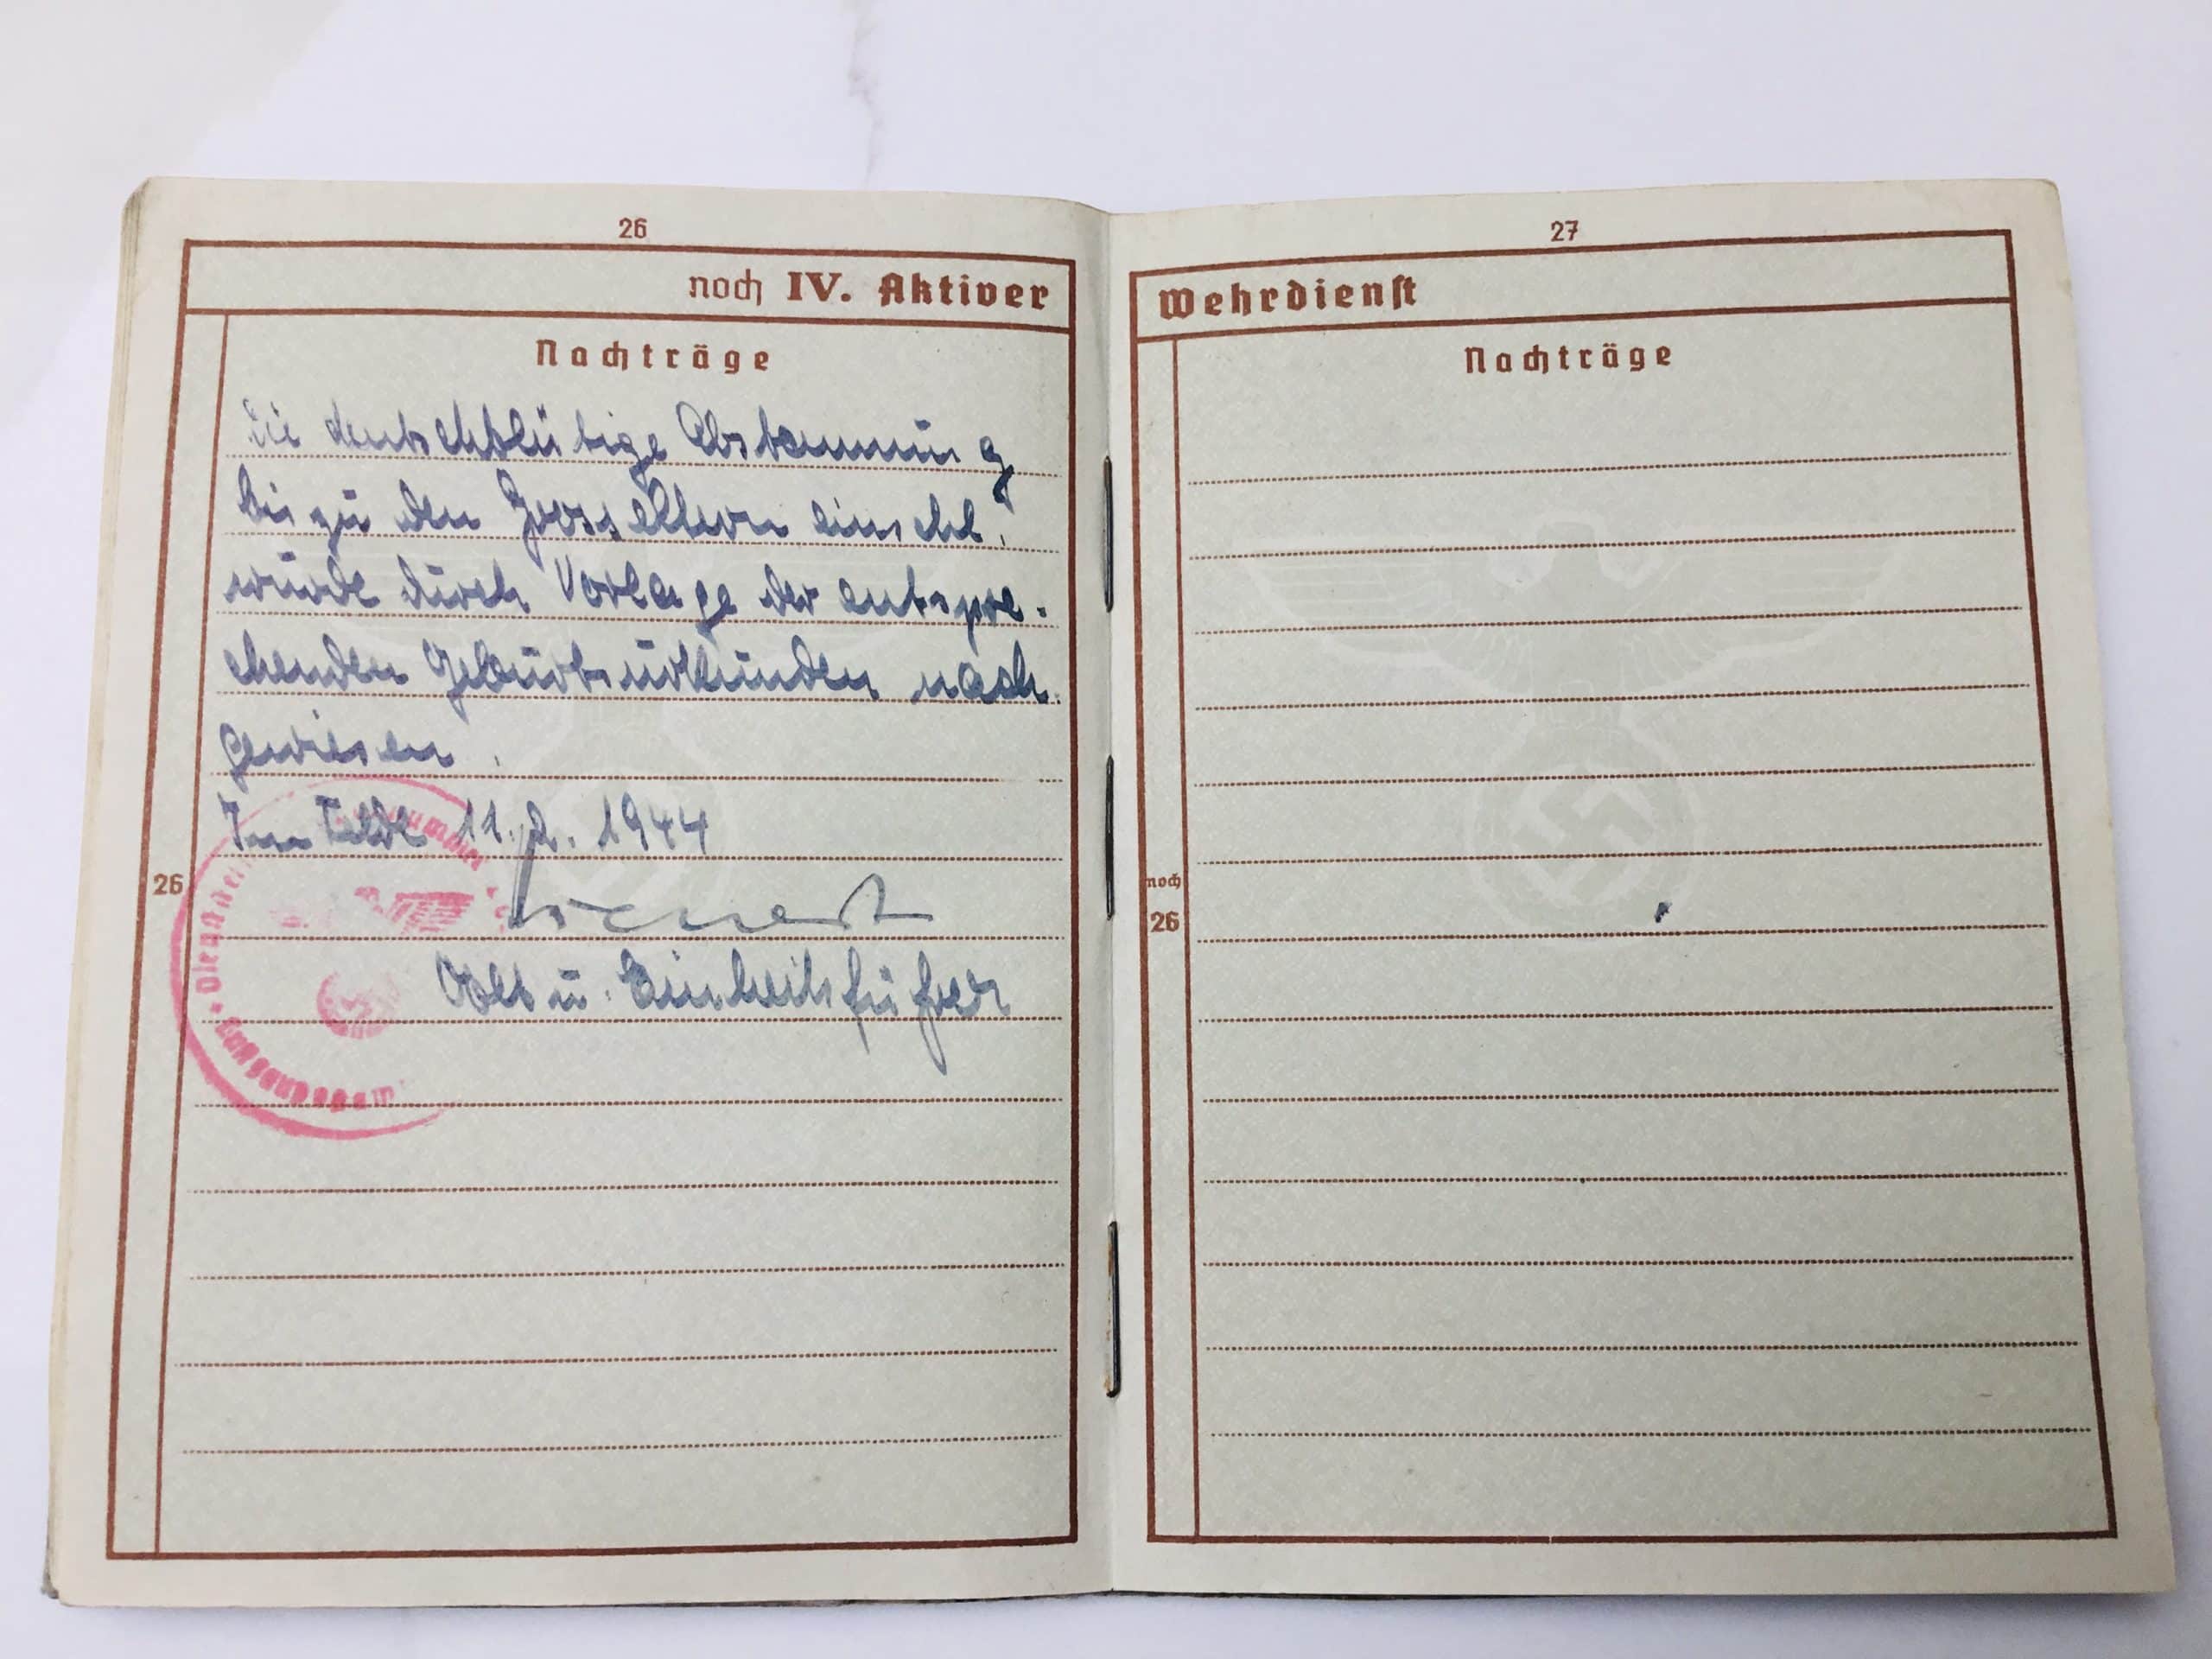 26
noch IV. Aktiver
Nachträge
Die deutschblütige Abstammung
bis zu den Grosseltern einschl.
wurde durch Vorlage der entspre-
chenden Geburtsurkunden nach-
gewiesen.
Im Felde 11.2.1944
26
Oblt u. Einheitsführer
Dienststelle
27
Wehrdienst
Nachträge
noch
26